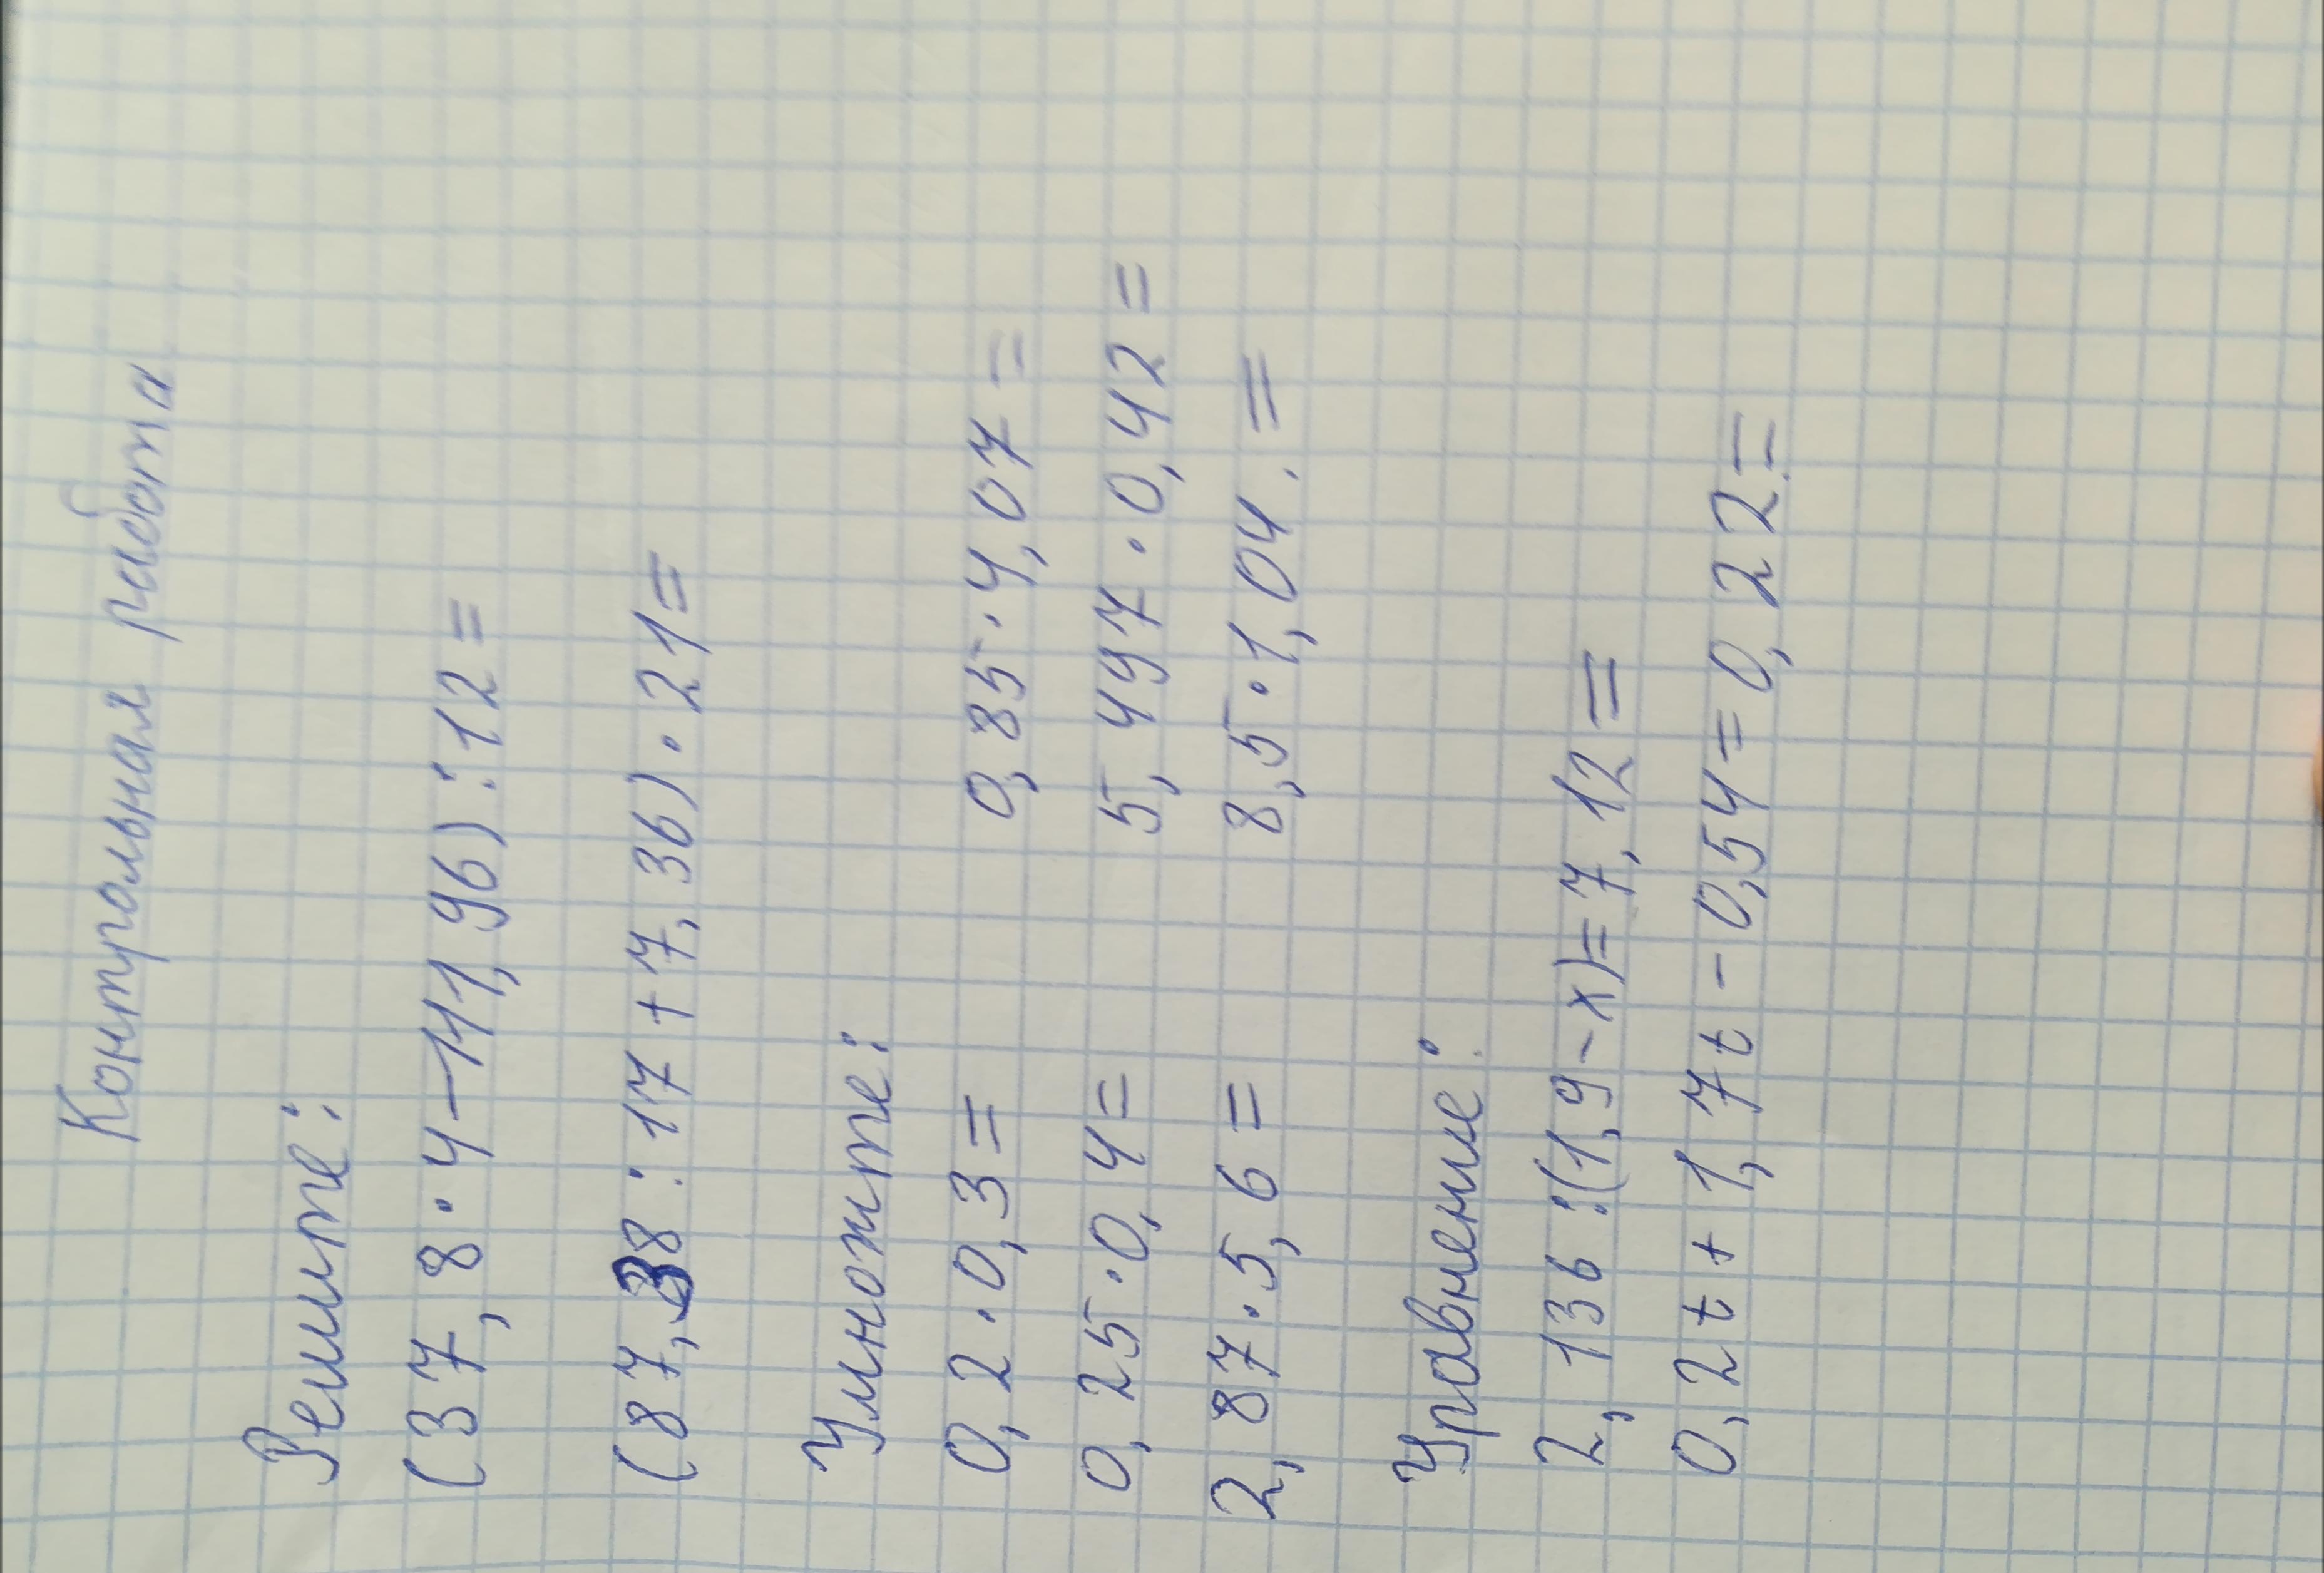 Контрольная работа
Решите:
(37,8·4-111,96):12=
(87,38:17+7,36)·21=
Умножте:
0,2·0,3= 0,85·4,07=
0,25·0,4= 5,497·0,42=
2,87·5,6= 8,5·1,04.=
Уравнение:
2,136:(1,9-x)=7,12=
0,2t+1,7t-0,54=0,22.=